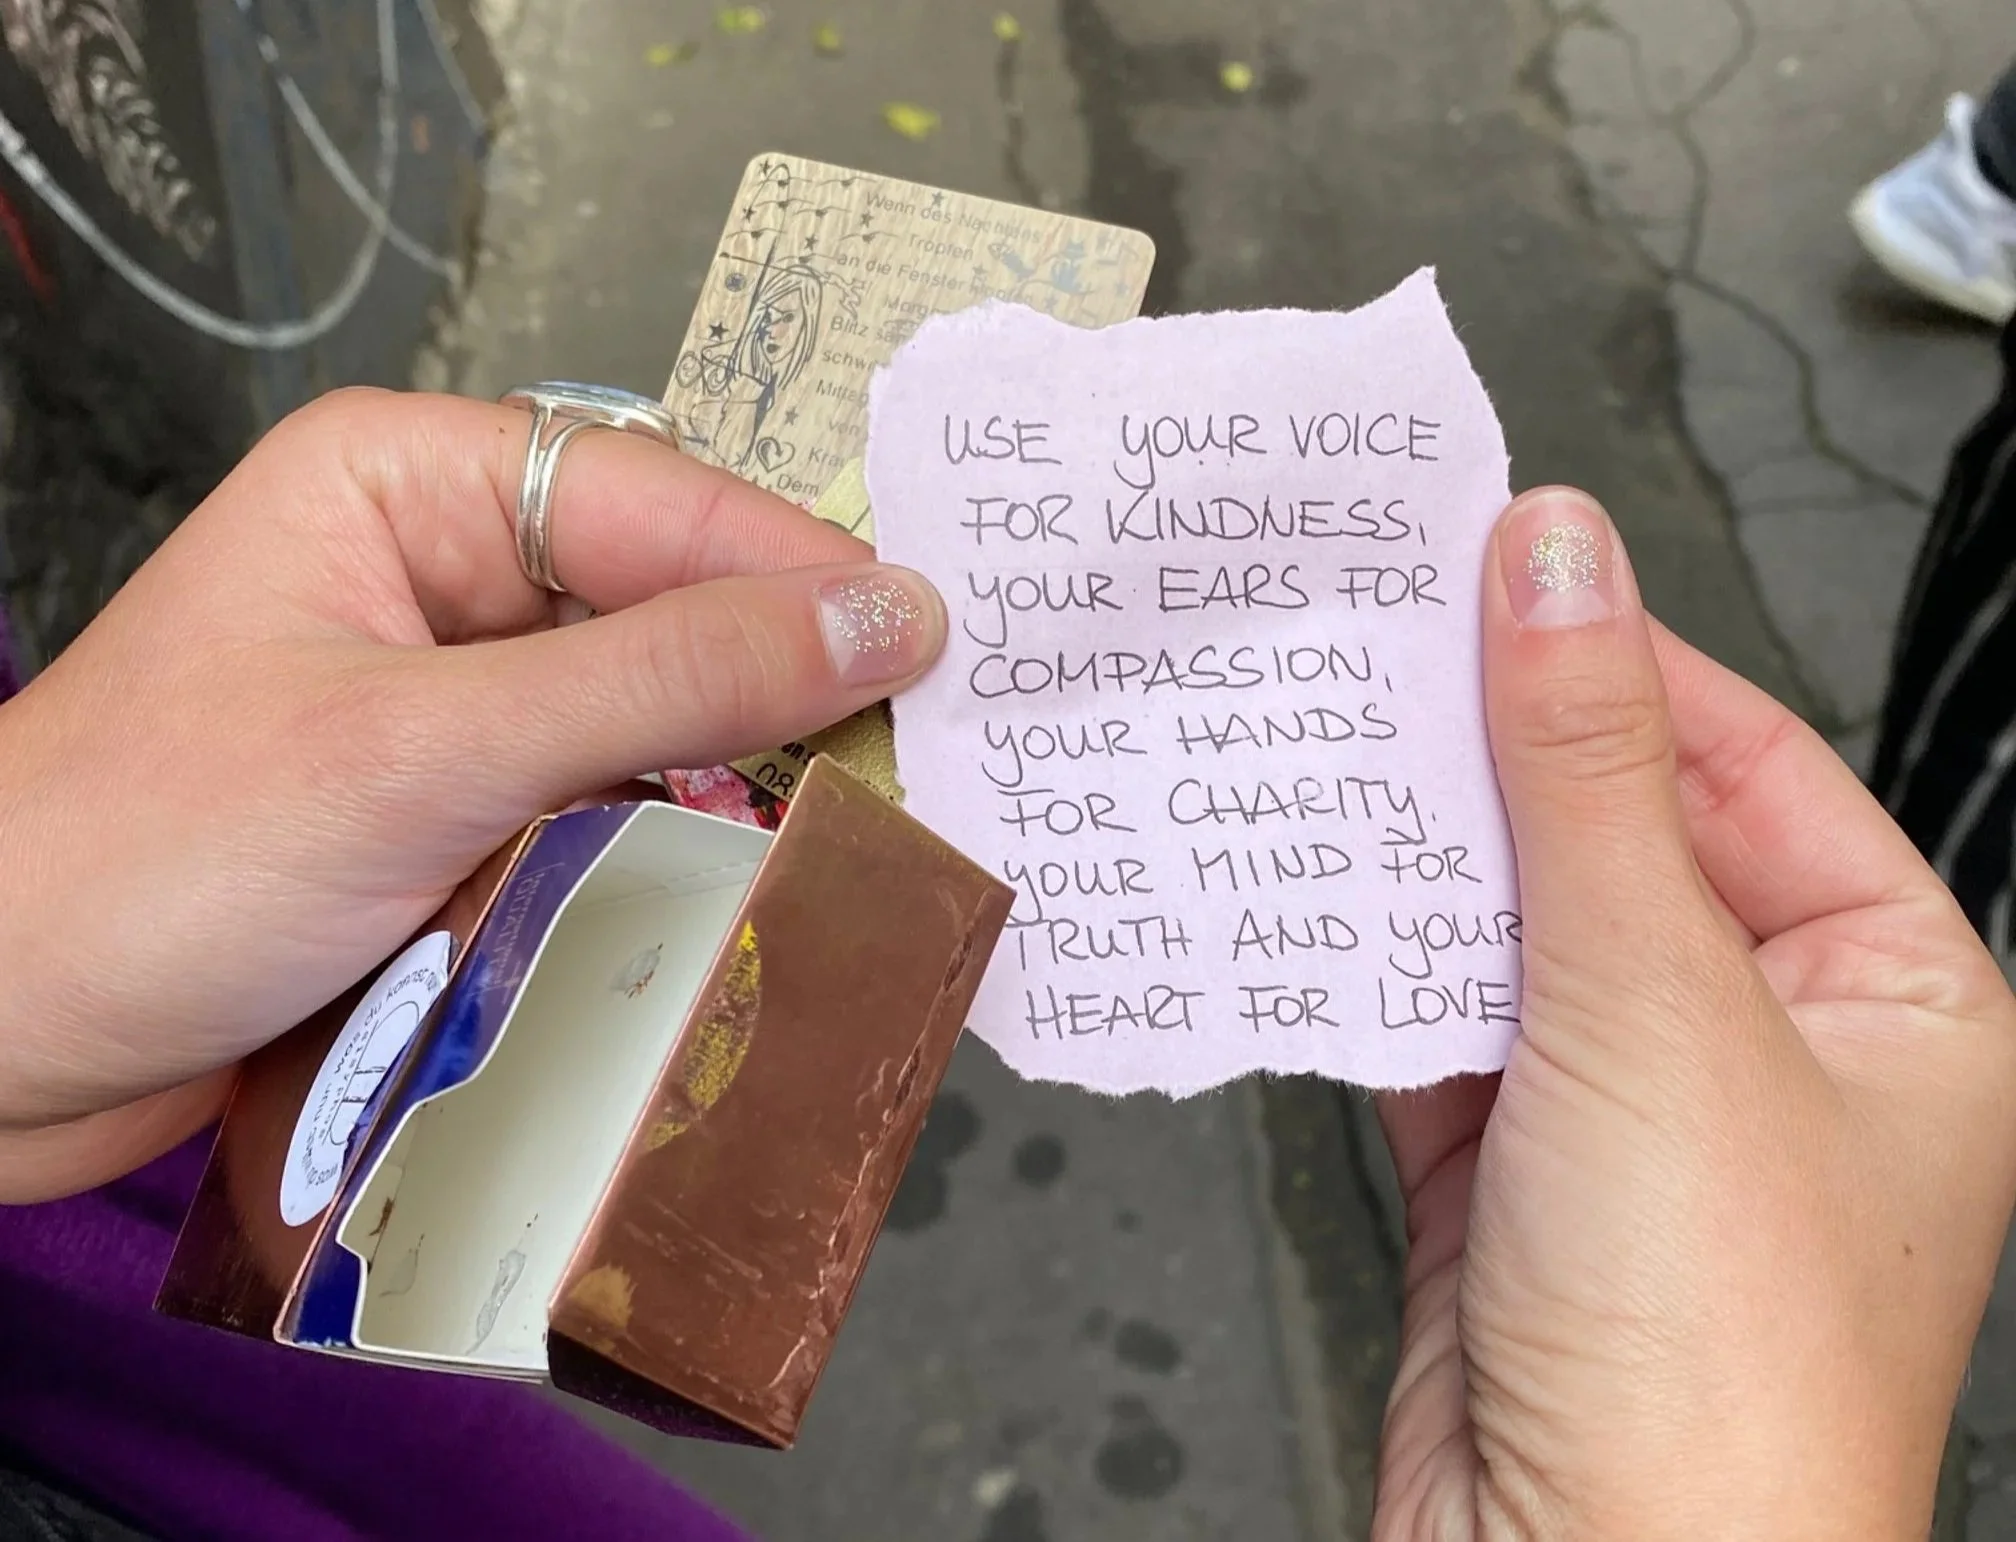 Wenn des Nachtens
Tropfen
an die Fenster
Blitz
Mittag
von
Dem
USE YOUR VOICE
FOR KINDNESS,
YOUR EARS FOR
COMPASSION,
YOUR HANDS
FOR CHARITY,
YOUR MIND FOR
TRUTH AND YOUR
HEART FOR LOVE
08
du kommst